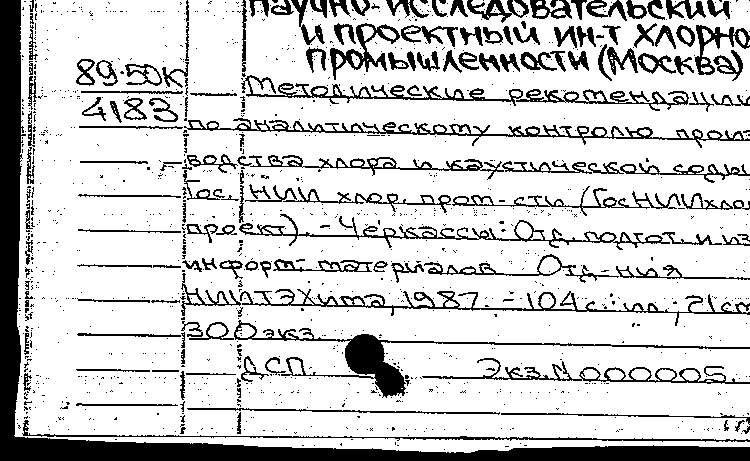 научно-исследовательский
и проектный ин-т хлорно
промышленности (Москва)
89-50К
4183
Методические рекомендации
по аналитическому контролю произ
водства хлора и каустической соды
Гос. НИИ хлор. пром-сти (ГосНИИхлор
проект). - Черкассы: Отд. подгот. и из
информ. материалов Отд-ния
НИИТЭХима, 1987. - 104 с.: ил.; 21 см
300 экз.
ДСП. Экз. N 000005.